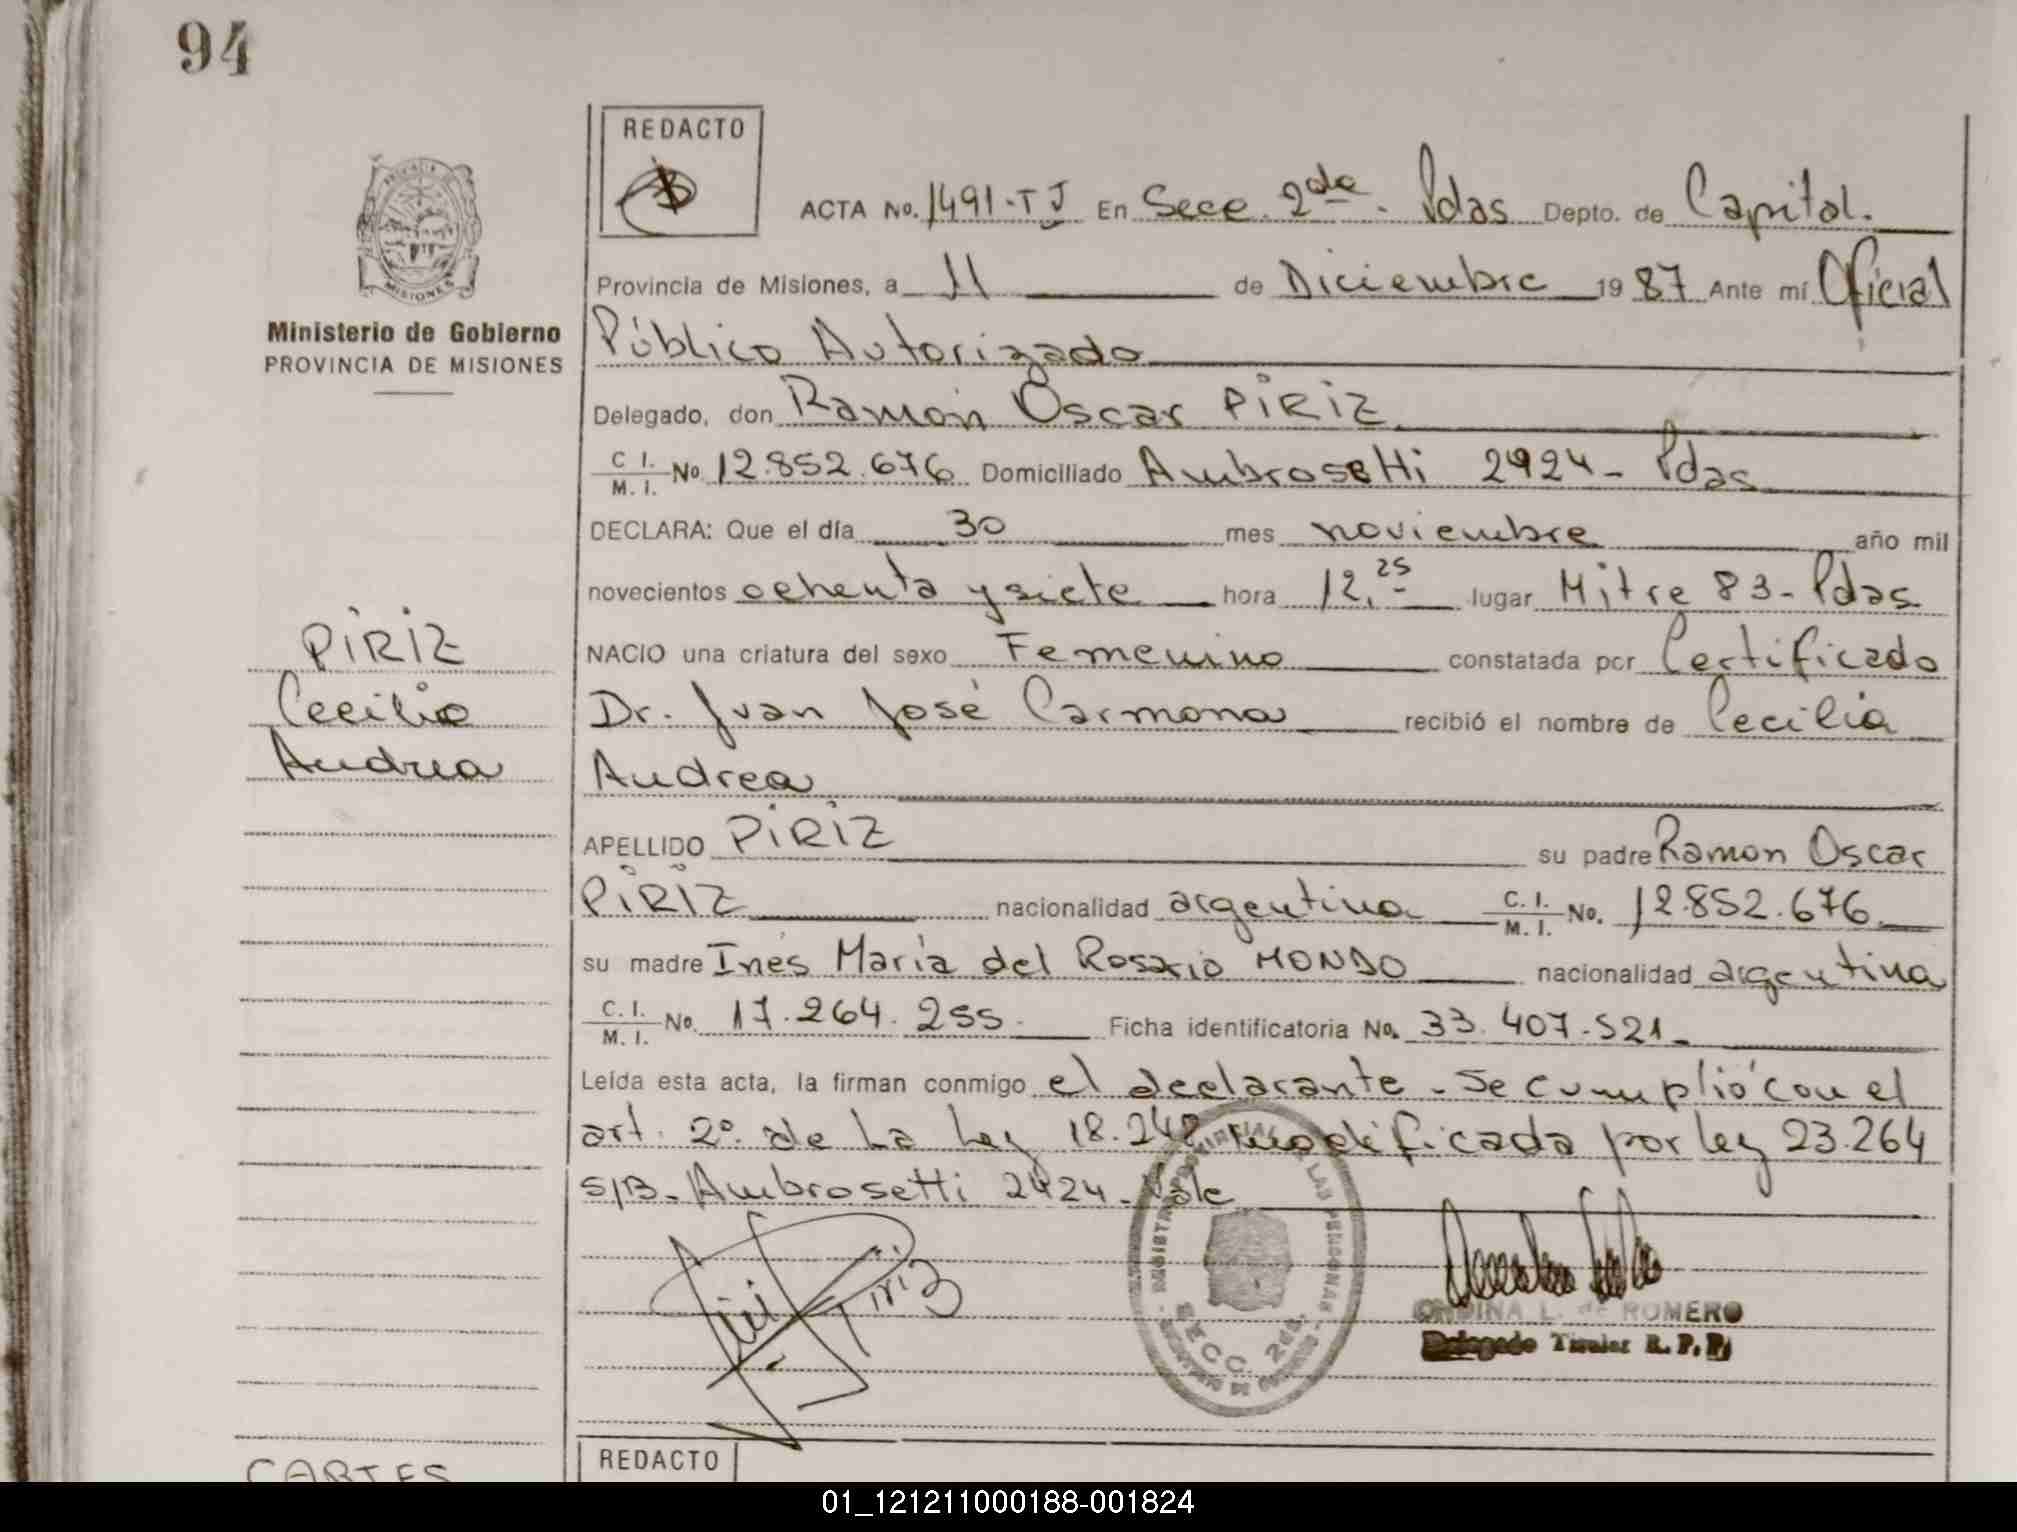 94
REDACTO
PROVINCIA DE
MISIONES
Ministerio de Gobierno
PROVINCIA DE MISIONES
ACTA No. 1491-TJ En Secc. 2da. Pdas Depto. de Capital.
Provincia de Misiones, a 11 de Diciembre 1987 Ante mí Oficial
Público Autorizado
Delegado, don Ramón Oscar PIRIZ
C I. / M. I. No. 12.852.676 Domiciliado Ambrosetti 2424 - Pdas
DECLARA: Que el día 30 mes noviembre año mil
novecientos ochenta y siete hora 12,25 lugar Mitre 83 - Pdas
NACIO una criatura del sexo Femenino constatada por Certificado
Dr. Juan José Carmona recibió el nombre de Cecilia
Andrea
PIRIZ
Cecilia
Andrea
APELLIDO PIRIZ su padre Ramon Oscar
PIRIZ nacionalidad argentina C. I. / M. I. No. 12.852.676
su madre Inés María del Rosario MONDO nacionalidad argentina
C. I. / M. I. No. 17.264.255. Ficha identificatoria No. 33.407.521
Leída esta acta, la firman conmigo el declarante - Se cumplió con el
art. 2º. de La Ley 18.248 modificada por ley 23.264
S/B - Ambrosetti 2424 - Vale
Piriz
SECC. 2da.
L. de ROMERO
Delegado Titular R. P. P.
REDACTO
CARTES
01_121211000188-001824